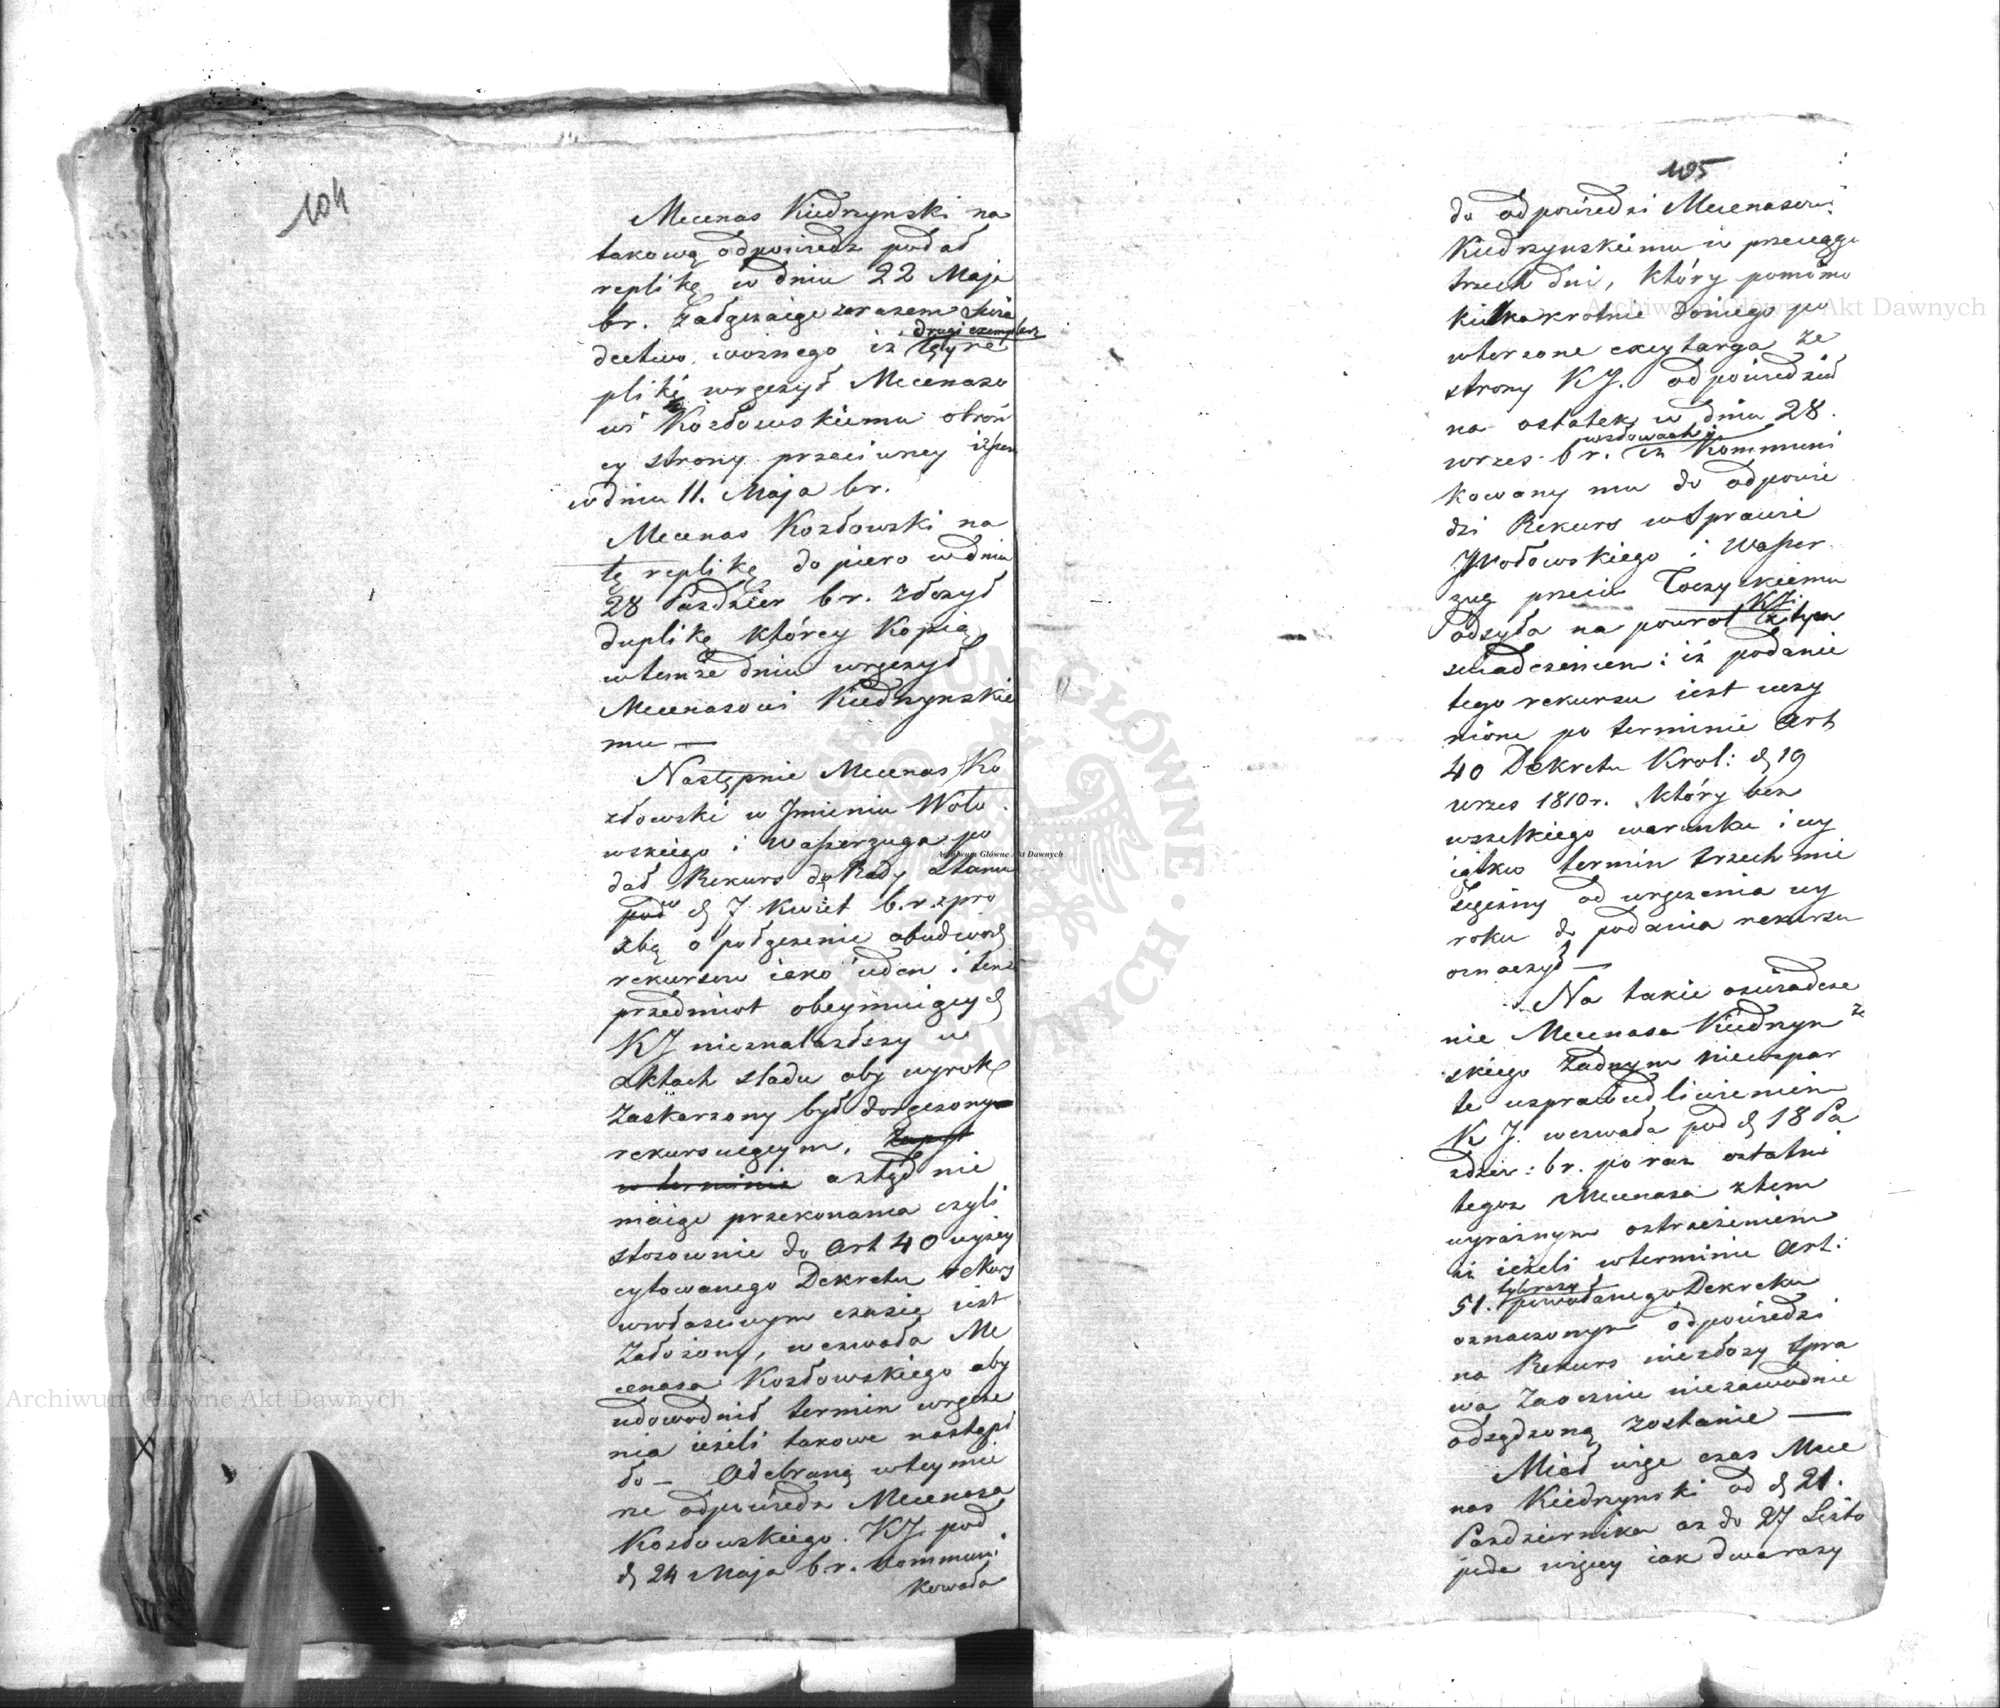 104
Mecenas Kiedrzynski na
takową odpowiedz podał
replikę w dniu 22 Maja
br. załączaiąc zarazem swia
drugi exemplarz
dectwo woznego iż tęyre
plikę wręczył Mecenaso
wi Kozłowskiemu obroń
cy strony przeciwney
w dniu 11. Maja br.
Mecenas Kozłowski na
tę replikę dopiero w dniu
28 Pazdzier br. złozył
duplikę którey kopią
w temże dniu wręczył
Mecenasowi Kiedrzynskie
mu —
Następnie Mecenas Ko
złowski w Jmieniu Woło
wskiego i Wasserzuga po
dał Rekurs do Rady Stanu
pod d 7 Kwiet b.r. z pro
zbą o połączenie obudwóch
rekursow iako ieden i tenż
przedmiot obeymuiących
KJ nieznalazłszy w
Aktach sladu aby wyrok
zaskarzony był doręczony
rekursuiącym,
w terminie a ztąd nie
maiąc przekonania czyli
stosownie do Art 40 wyżey
cytowanego Dekretu rekurs
w właściwym czasie iest
założony, wezwała Me
cenasa Kozłowskiego aby
udowodnił termin wręcze
nia ieżeli takowe nastąpi
ło — Odebraną w tey mie
rze odpowiedz Mecenasa
Kozłowskiego KJ. pod
d 24 Maja b.r. kommuni
kowała
105
do odpowiedzi Mecenasowi
Kiedrzynskiemu w przeciągu
trzech dni, który pomimo
kilkakrotnie doniego po
wtorzone excytarza ze
strony KJ. odpowiedział
na ostatek w dniu 28.
wsłowach
wrzes. br. iż Kommuni
kowany mu do odpowie
dzi Rekurs w Sprawie
Wołowskiego i Wasser
zug przeciw Toczyskiemu
KJ.
odsyła na powrot z tym
swiadczeniem: iż podanie
tego rekursu iest uczy
nione po terminie Art
40 Dekretu Krol: d 19
wrzes 1810 r. który bez
wszelkiego warunku i wy
iątku termin trzech mie
sięczny od wręczenia wy
roku do podania rekursu
oznaczył —
Na takie oswiadcze
nie Mecenasa Kiedrzyn
skiego żadnym niewspar
te usprawiedliwieniem
KJ. wezwała pod d 18 Pa
zdzier: br. po raz ostatni
tegoz Mecenasa z tem
wyraznym ostrzeżeniem
iż ieżeli w terminie Art:
51. powołanego Dekretu
oznaczonym odpowiedzi
na Rekurs niezłoży spra
wa zaocznie niezawodnie
odsądzoną zostanie —
Miał więc czas Mece
nas Kiedrzynski od d 21.
Pazdziernika az do 27 Listo
pada więcey iak dwa razy